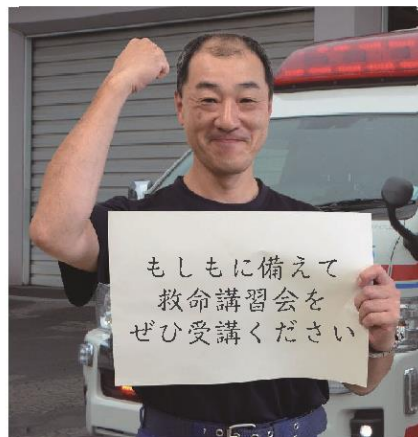 もしもに備えて
救命講習会を
ぜひ受講ください